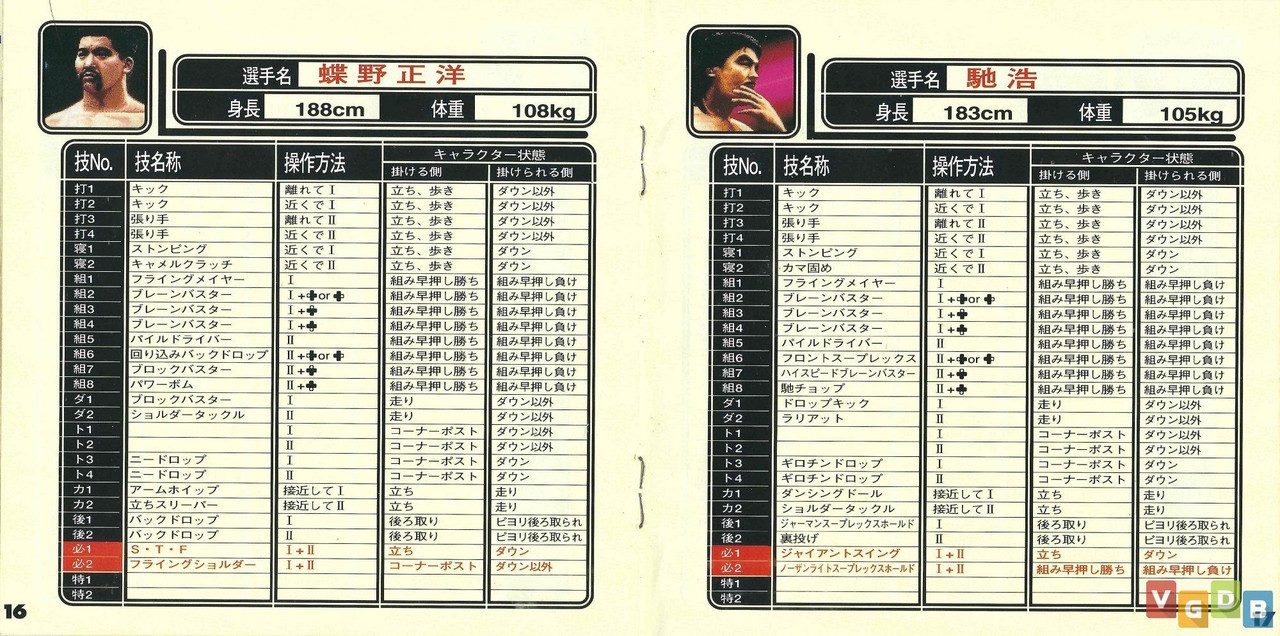 選手名 蝶野正洋
身長 188cm 体重 108kg
技No. 技名称 操作方法 キャラクター状態
掛ける側 掛けられる側
打1 キック 離れてⅠ 立ち、歩き ダウン以外
打2 キック 近くでⅠ 立ち、歩き ダウン以外
打3 張り手 離れてⅡ 立ち、歩き ダウン以外
打4 張り手 近くでⅡ 立ち、歩き ダウン以外
寝1 ストンピング 近くでⅠ 立ち、歩き ダウン
寝2 キャメルクラッチ 近くでⅡ 立ち、歩き ダウン
組1 フライングメイヤー Ⅰ 組み早押し勝ち 組み早押し負け
組2 ブレーンバスター Ⅰ+✚or✚ 組み早押し勝ち 組み早押し負け
組3 ブレーンバスター Ⅰ+✚ 組み早押し勝ち 組み早押し負け
組4 ブレーンバスター Ⅰ+✚ 組み早押し勝ち 組み早押し負け
組5 パイルドライバー Ⅱ 組み早押し勝ち 組み早押し負け
組6 回り込みバックドロップ Ⅱ+✚or✚ 組み早押し勝ち 組み早押し負け
組7 ブロックバスター Ⅱ+✚ 組み早押し勝ち 組み早押し負け
組8 パワーボム Ⅱ+✚ 組み早押し勝ち 組み早押し負け
ダ1 ブロックバスター Ⅰ 走り ダウン以外
ダ2 ショルダータックル Ⅱ 走り ダウン以外
ト1 Ⅰ コーナーポスト ダウン以外
ト2 Ⅱ コーナーポスト ダウン以外
ト3 ニードロップ Ⅰ コーナーポスト ダウン
ト4 ニードロップ Ⅱ コーナーポスト ダウン
カ1 アームホイップ 接近してⅠ 立ち 走り
カ2 立ちスリーパー 接近してⅡ 立ち 走り
後1 バックドロップ Ⅰ 後ろ取り ピヨリ後ろ取られ
後2 バックドロップ Ⅱ 後ろ取り ピヨリ後ろ取られ
必1 S・T・F Ⅰ+Ⅱ 立ち ダウン
必2 フライングショルダー Ⅰ+Ⅱ コーナーポスト ダウン以外
特1
特2
16
選手名 馳浩
身長 183cm 体重 105kg
技No. 技名称 操作方法 キャラクター状態
掛ける側 掛けられる側
打1 キック 離れてⅠ 立ち、歩き ダウン以外
打2 キック 近くでⅠ 立ち、歩き ダウン以外
打3 張り手 離れてⅡ 立ち、歩き ダウン以外
打4 張り手 近くでⅡ 立ち、歩き ダウン以外
寝1 ストンピング 近くでⅠ 立ち、歩き ダウン
寝2 カマ固め 近くでⅡ 立ち、歩き ダウン
組1 フライングメイヤー Ⅰ 組み早押し勝ち 組み早押し負け
組2 ブレーンバスター Ⅰ+✚or✚ 組み早押し勝ち 組み早押し負け
組3 ブレーンバスター Ⅰ+✚ 組み早押し勝ち 組み早押し負け
組4 ブレーンバスター Ⅰ+✚ 組み早押し勝ち 組み早押し負け
組5 パイルドライバー Ⅱ 組み早押し勝ち 組み早押し負け
組6 フロントスープレックス Ⅱ+✚or✚ 組み早押し勝ち 組み早押し負け
組7 ハイスピードブレーンバスター Ⅱ+✚ 組み早押し勝ち 組み早押し負け
組8 馳チョップ Ⅱ+✚ 組み早押し勝ち 組み早押し負け
ダ1 ドロップキック Ⅰ 走り ダウン以外
ダ2 ラリアット Ⅱ 走り ダウン以外
ト1 Ⅰ コーナーポスト ダウン以外
ト2 Ⅱ コーナーポスト ダウン以外
ト3 ギロチンドロップ Ⅰ コーナーポスト ダウン
ト4 ギロチンドロップ Ⅱ コーナーポスト ダウン
カ1 ダンシングドール 接近してⅠ 立ち 走り
カ2 ショルダータックル 接近してⅡ 立ち 走り
後1 ジャーマンスープレックスホールド Ⅰ 後ろ取り ピヨリ後ろ取られ
後2 裏投げ Ⅱ 後ろ取り ピヨリ後ろ取られ
必1 ジャイアントスイング Ⅰ+Ⅱ 立ち ダウン
必2 ノーザンライトスープレックスホールド Ⅰ+Ⅱ 組み早押し勝ち 組み早押し負け
特1
特2
17
VGDB